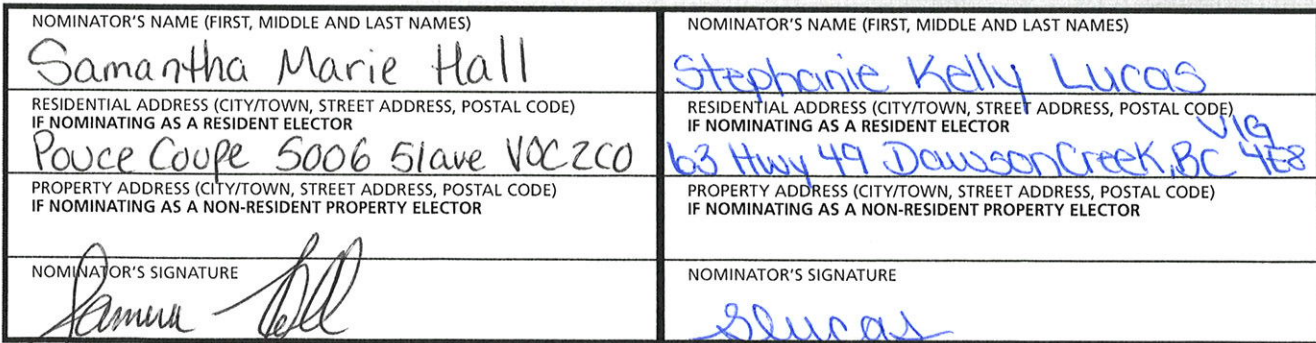 NOMINATOR'S NAME (FIRST, MIDDLE AND LAST NAMES)
Samantha Marie Hall
RESIDENTIAL ADDRESS (CITY/TOWN, STREET ADDRESS, POSTAL CODE)
IF NOMINATING AS A RESIDENT ELECTOR
Pouce Coupe 5006 51ave V0C2C0
PROPERTY ADDRESS (CITY/TOWN, STREET ADDRESS, POSTAL CODE)
IF NOMINATING AS A NON-RESIDENT PROPERTY ELECTOR
NOMINATOR'S SIGNATURE
NOMINATOR'S NAME (FIRST, MIDDLE AND LAST NAMES)
Stephanie Kelly Lucas
RESIDENTIAL ADDRESS (CITY/TOWN, STREET ADDRESS, POSTAL CODE)
IF NOMINATING AS A RESIDENT ELECTOR
V1G
63 Hwy 49 Dawson Creek, BC 4E8
PROPERTY ADDRESS (CITY/TOWN, STREET ADDRESS, POSTAL CODE)
IF NOMINATING AS A NON-RESIDENT PROPERTY ELECTOR
NOMINATOR'S SIGNATURE
SLucas